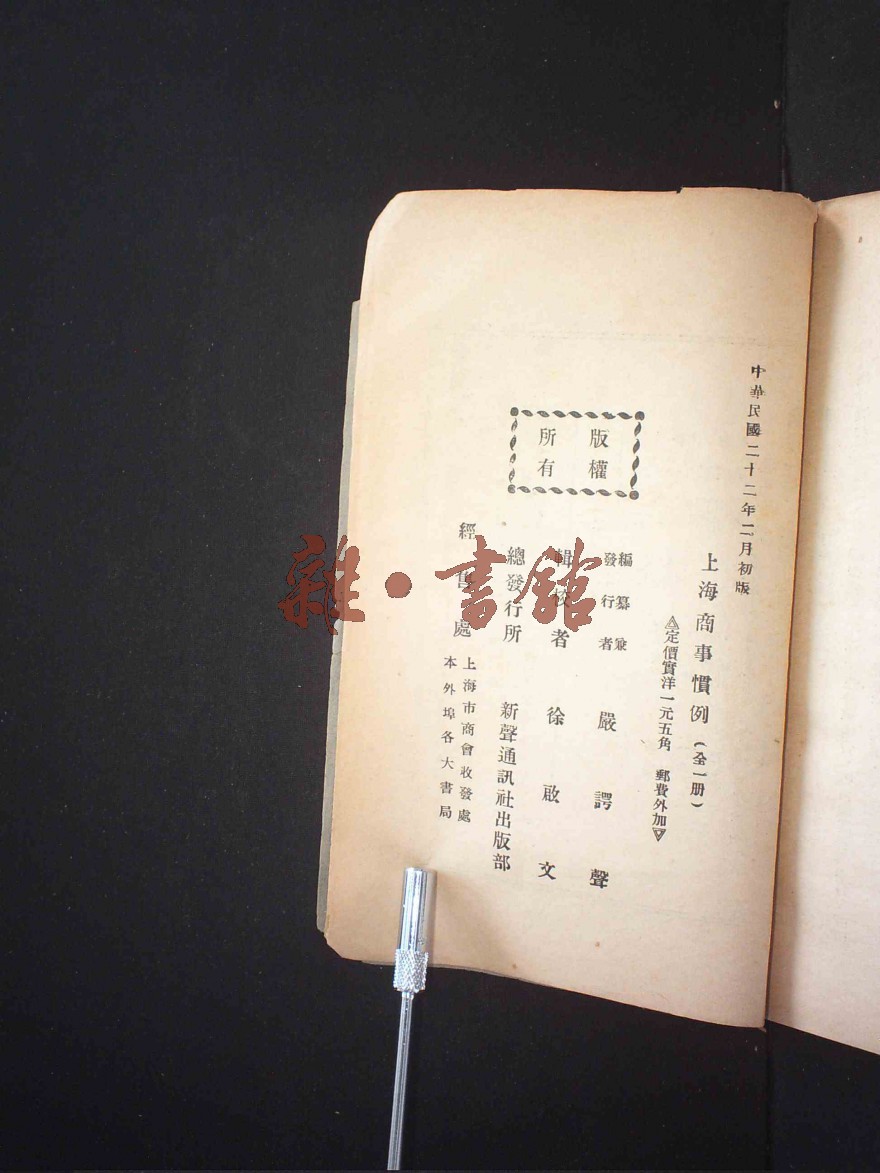 中華民國二十二年二月初版
上海商事慣例(全一册)
定價實洋一元五角 郵費外加
版權
所有
編纂兼
發行者 嚴諤聲
輯校者 徐啟文
總發行所 新聲通訊社出版部
經售處 上海市商會收發處
本外埠各大書局
雜·書館